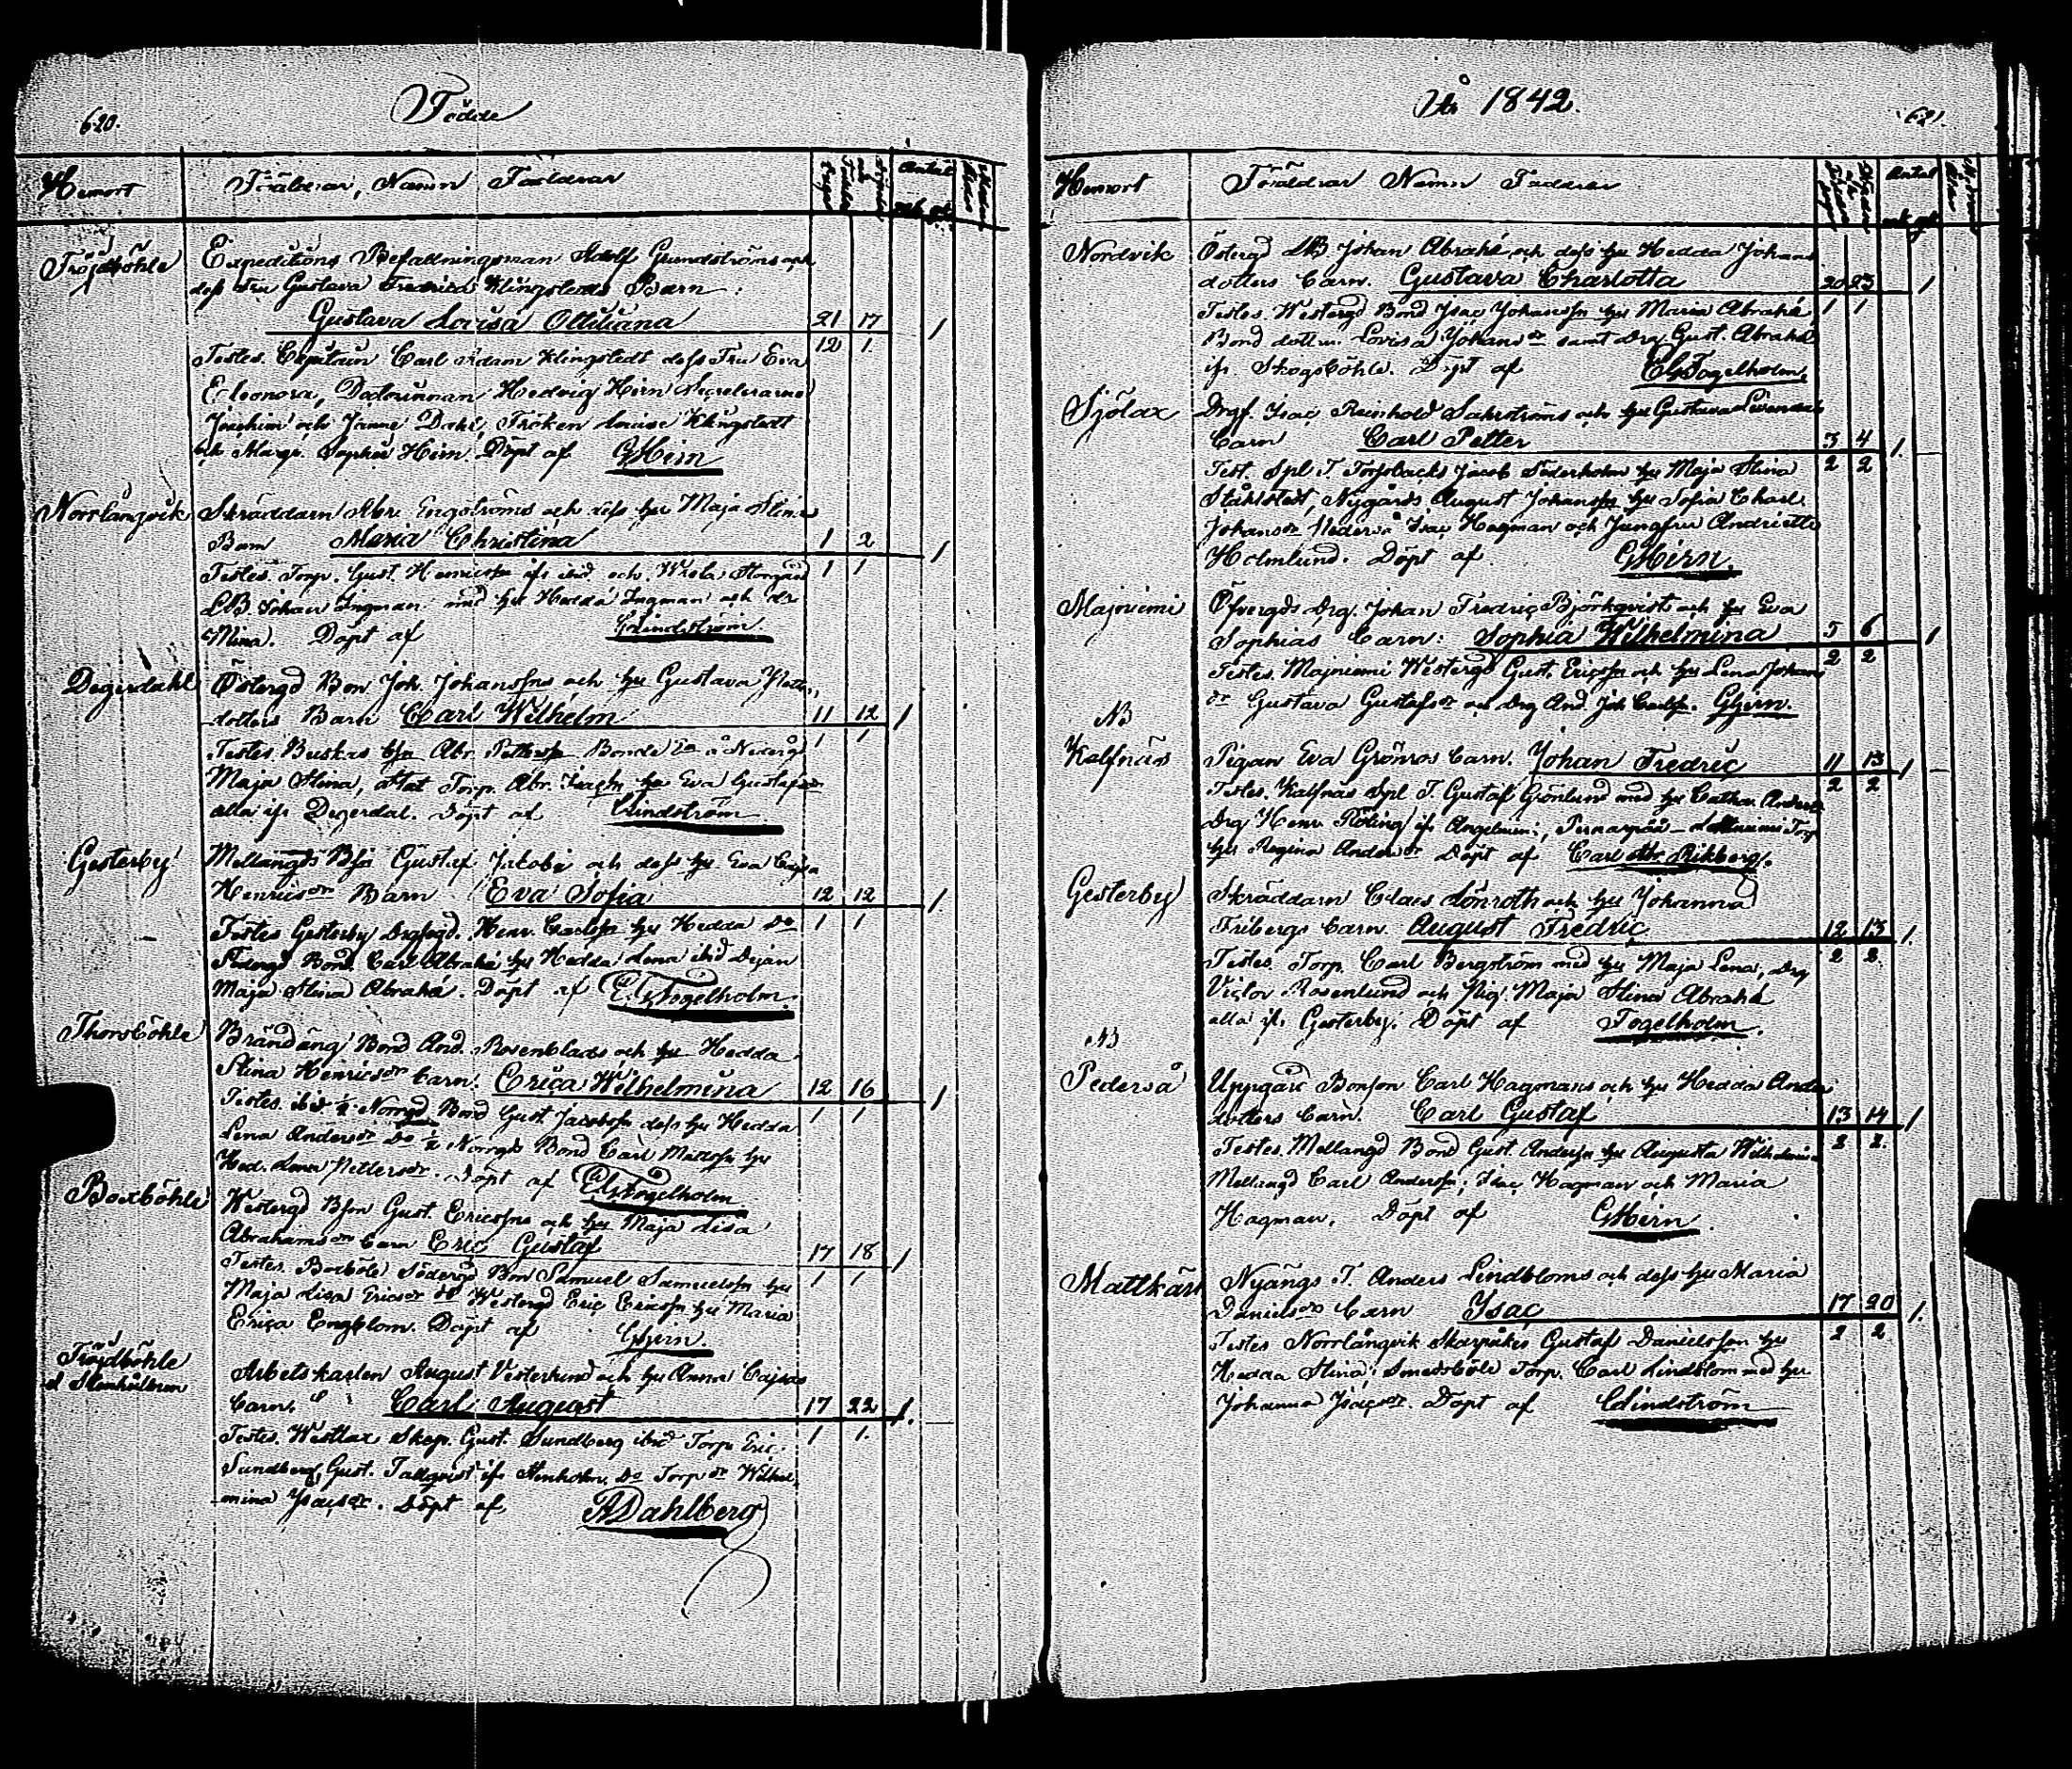 620.
Födde
Hemort
Föräldrar, Namn Faddrar
Antal
Fröjdböhle
Expeditions Befallningsman Adolf Grundströms och
dess Fru Gustava Fredrica Klingstedts Barn:
Gustava Lovisa Ottiliana 21 17 1
Testes. Capitain Carl Adam Klingstedt dess Fru Eva 12 1.
Eleonora, Hedwig Hirn
Joachim och Janne Dahl, Fröken Louise Klingstedt
och Margr. Sophie Hirn. Döpt af GHirn
Norrlångvik
Skräddarn Abr. Engströms och dess hu Maja Stina
Barn Maria Christina 1 2 1
Testes. Torp. Gust. Henricsson ifr ibid. och 1 1
LB Johan Ingman med hu Hedda Ingman och dr
Stina. Döpt af CLindström.
Degerdahl
Östergd Bon Joh. Johanssons och hu Gustava
dotters Barn Carl Wilhelm 11 12 1
Testes. Buskas Abr. Bonde Nedergd 1 1
Maja Stina, Stat Torp. Abr. hu Eva Gustafsdr
alla ifr Degerdal. Döpt af CLindström
Gesterby
Mellangds Gustaf Jakobs och dess hu Eva Cajsa
Henricsdr Barn Eva Sofia 12 12 1.
Testes Gesterby Henr. Carlsson hu Hedda Do 1 1
Bond. Carl Abrahs hu Hedda Lena ibid
Maja Stina Abrahs. Döpt af C.G.Fogelholm.
Thorsböhle
Brändäng Bond And. Rosenblads och hu Hedda
Stina Henricsdr barn. Erica Wilhelmina 12 16 1
Testes. ibid ½ Norrgd Bond Gust. Jacobsson dess hu Hedda 1 1
Lena Andersdr Do ½ Norrgds Bond Carl Mattsson hu
Hed. Lena Pettersdr. Döpt af C.G.Fogelholm
Boxböhle
Westergd Bson Gust. Ericssons och hu Maja Lisa
Abrahamsdr barn Eric Gustaf 17 18 1
Testes. Boxböle Södergd Bon Samuel Samuelsson hu 1 1
Maja Lisa Ericsdr do Westergd Eric Ericsson hu Maria
Erica Engblom. Döpt af GHirn.
Fröjdböhle
Arbetskarlen August Vesterlund och hu Anna Cajsas
barn. Carl August 17 22 1.
Testes. Westlax Skep. Gust. Sundberg ibid Torp Eric 1 1.
Sundberg, Gust. Tallqvist ifr Stenholm. Do Torp dr Wilhel
mina Isacsdr. Döpt af ADahlberg
År 1842.
621.
Hemort
Föräldrar Namn Faddrar
Antal
Nordvik
Östergd LB Johan Abrahs och dess hu Hedda Johans
dotters barn. Gustava Charlotta 20 23 1
Testes. Westergd Bond Isac Johansson hu Maria Abrahs 1 1
Bond dottern Lovisa Johansdr samt Drg Gust. Abrahs
ifr. Skogsböhle. Döpt af CGFogelholm.
Sjölax
Drgf. Isac Reinhold Sahrströms och hu Gustava
barn Carl Petter 3 4 1.
Test. Spl T. Jacob Söderholm hu Maja Stina 2 2
Ståhlstedt, Nygårds August Johansson hu Sofia Charl.
Johansdr Isac Hagman och Jungfru Andriette
Holmlund. Döpt af GHirn.
Majniemi
Öfvergds Drg. Johan Fredric Björkqvists och hu Eva
Sophias barn: Sophia Wilhelmina 5 6 1
Testes. Majniemi Westergd Gust. Ericsson och hu Lena Johans 2 2
dr Gustava Gustafsdr och Drg And. Joh Carlss. GHirn.
NB
Kalfnäs
Pigan Eva Grönros barn. Johan Fredric 11 13 1
Testes. Kalfnäs Spl T. Gustaf Grönlund med hu Cathar. Anders 2 2
Drg Henr. Röling ifr Angelniemi, Torp
hu Regina Andersdr Döpt af Carl Abr. Rikberg.
Gesterby
Skräddarn Claes Lönroths och hu Johanna
Fribergs barn. August Fredric 12 13 1.
Testes. Torp. Carl Bergström med hu Maja Lena, Drg 2 2.
Victor Rosenlund och Pig. Maja Stina Abrahs
alla ifr Gesterby. Döpt af Fogelholm.
NB
Pederså
Uppgård Bonson Carl Hagmans och hu Hedda Anders
dotters barn. Carl Gustaf 13 14 1
Testes. Mellangd Bond Gust. Anderss hu Augusta Wilhelmina 2 2.
Mellangd Carl Anderss, Isac Hagman och Maria
Hagman. Döpt af GHirn
Mattkärr
Nyängs T. Anders Lindbloms och dess hu Maria
Danielsdrs barn Isac 17 20 1.
Testes Norrlångvik Gustaf Danielsson hu 2 2
Hedda Stina, Smedsböle Torp. Carl Lindblom med hu
Johanna Isacsdr. Döpt af CLindström